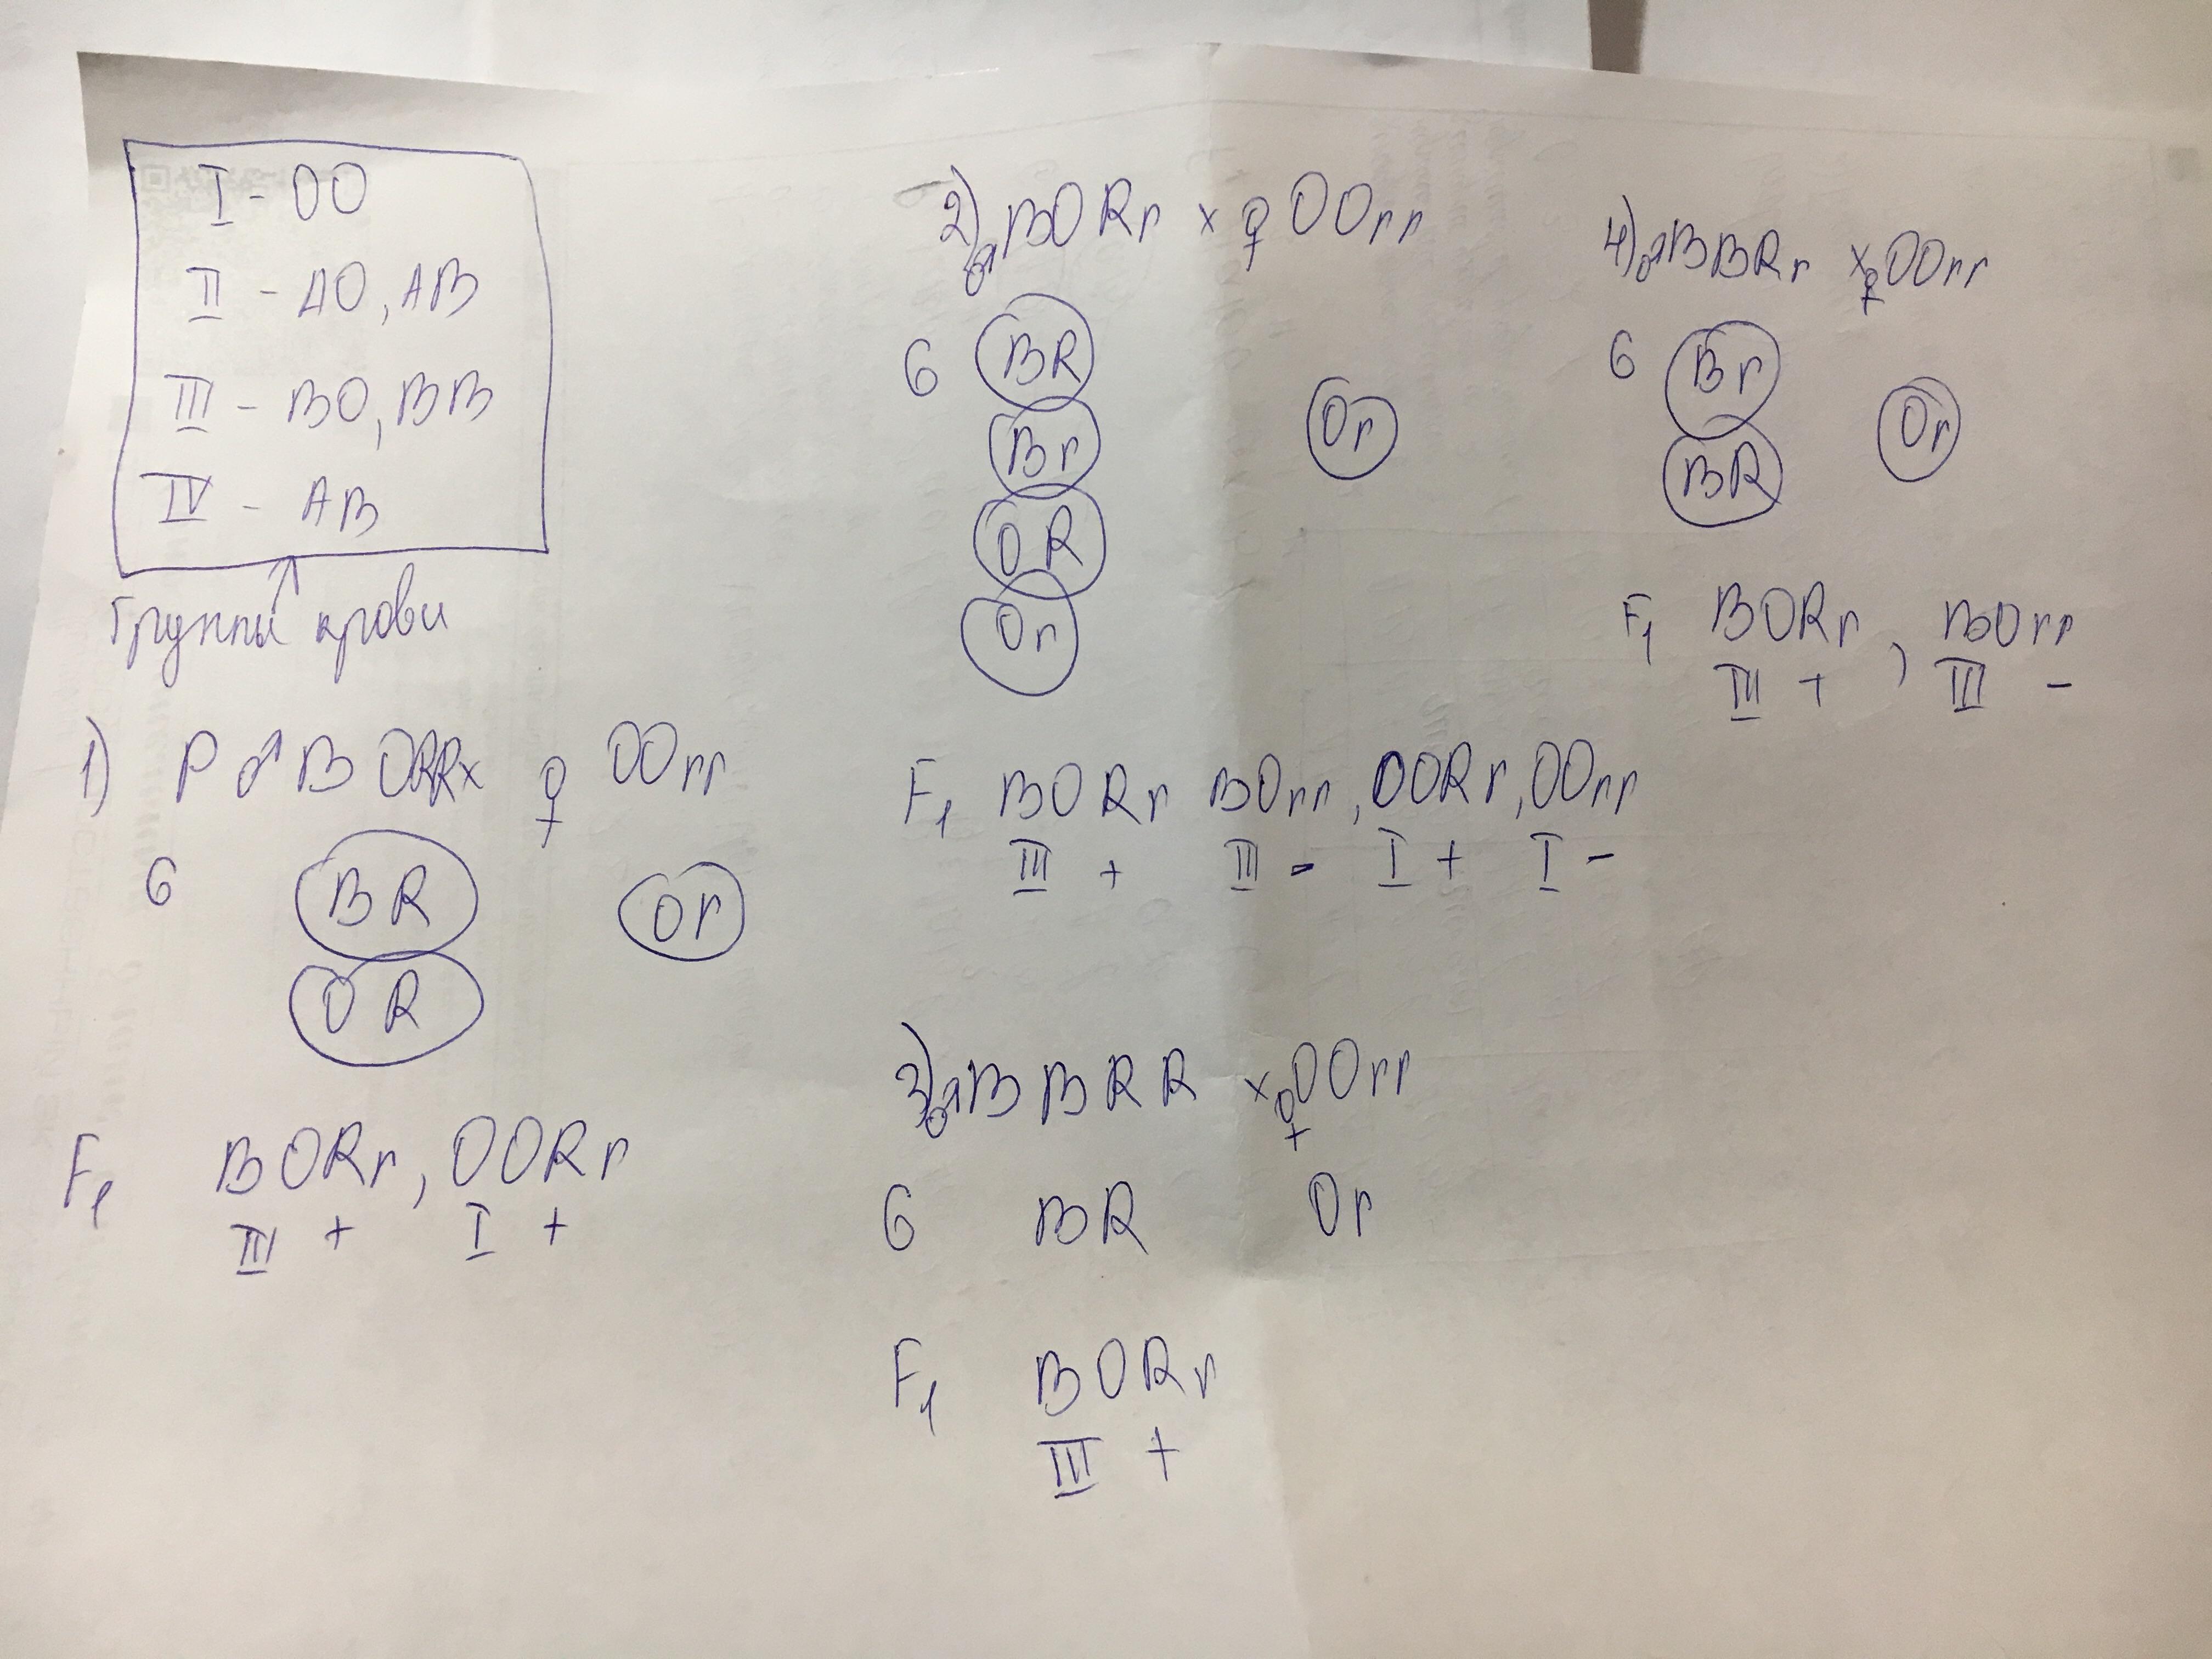 I - OO
II - AO, AB
III - BO, BB
IV - AB
Группы крови
1) P ♂ BORR x ♀ OOrr
G BR Or
OR
F1 BORr, OORr
III + I +
2) ♂ BORr x ♀ OOrr
G BR
Br Or
OR
Or
F1 BORr BOrr, OORr, OOrr
III + III - I + I -
3) ♂ BBRR x ♀ OOrr
G BR Or
F1 BORr
III +
4) ♂ BBRr x ♀ OOrr
G Br Or
BR
F1 BORr, BOrr
III + III -